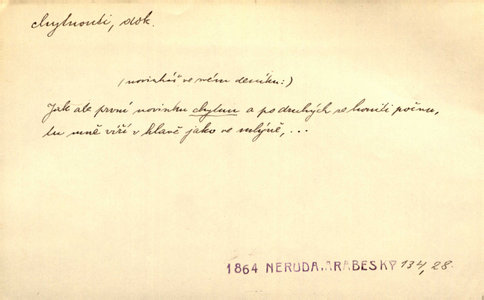 chytnouti, dok.
(novinář ve svém deníku:)
Jak ale první novinku chytnu a po druhých se honiti počnu,
tu mně víří v hlavě jako ve mlýně, ...
1864 NERUDA, ARABESKY 134, 28.